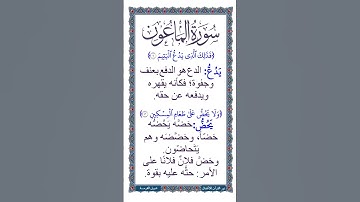 سُورَةُ المَاعُون
﴿فَذَٰلِكَ ٱلَّذِى يَدُعُّ ٱلْيَتِيمَ ۝٢﴾
يَدُعُّ: الدع هو الدفع بعنف
وجفوة؛ فكأنه يقهره
ويدفعه عن حقه.
﴿وَلَا يَحُضُّ عَلَىٰ طَعَامِ ٱلْمِسْكِينِ ۝٣﴾
يَحُضُّ: حَضَّه يَحُضُّه
حضّاً، وحَضَّضَه وهم
يَتَحاضّون.
وحَضَّ فلانٌ فلانًا على
الأمر: حثَّه عليه بقوة.